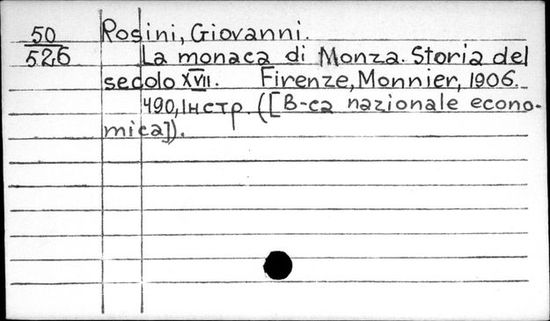 50
52,6
Rosini, Giovanni.
La monaca di Monza. Storia del
secolo XVII. Firenze, Monnier, 1906.
490, Iнстр. ([B-ca nazionale econo-
mica]).